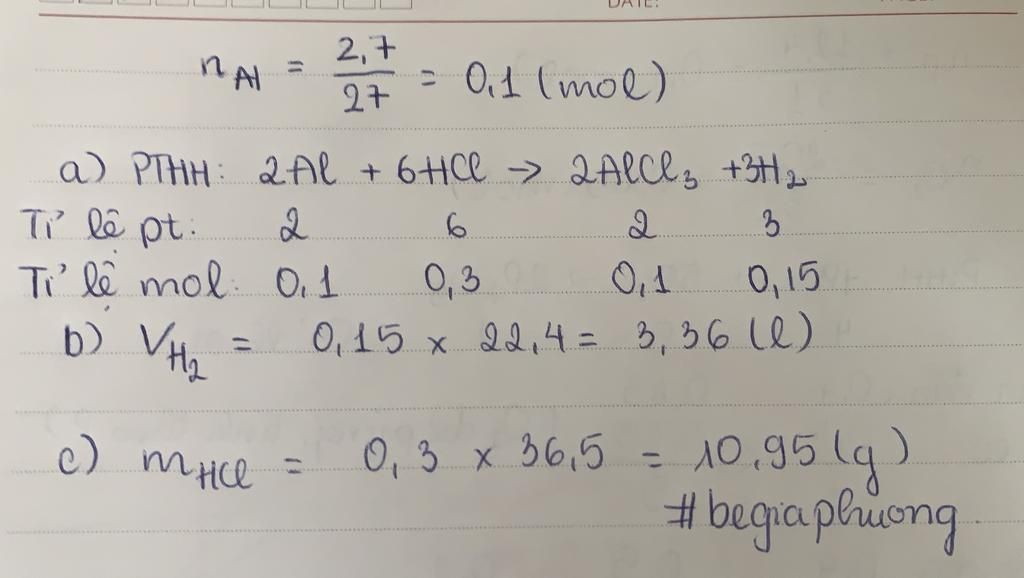 DATE:
n Al = 2,7 / 27 = 0,1 (mol)
a) PTHH: 2Al + 6HCl → 2AlCl₃ + 3H₂
Tỉ lệ pt: 2 6 2 3
Tỉ lệ mol: 0,1 0,3 0,1 0,15
b) V H₂ = 0,15 × 22,4 = 3,36 (l)
c) m HCl = 0,3 × 36,5 = 10,95 (g)
#begiaphuong